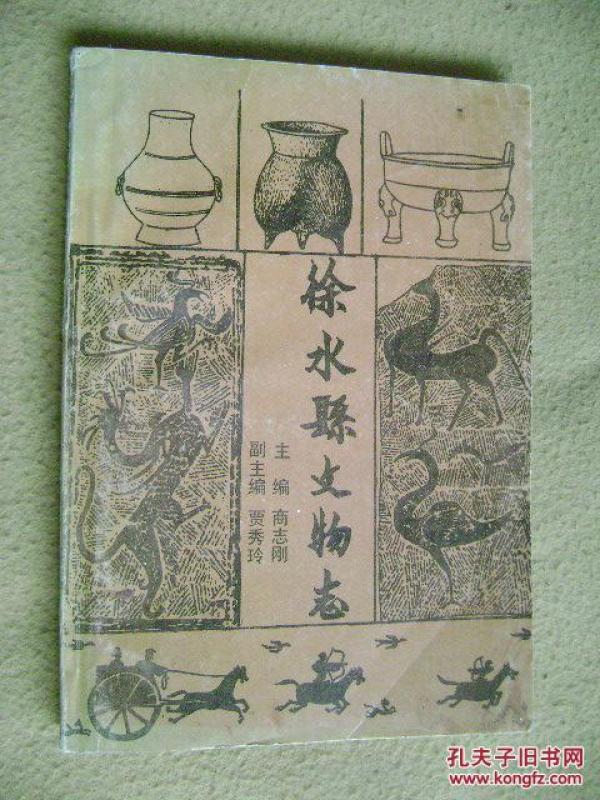 徐水縣文物志
主编 商志刚
副主编 贾秀玲
孔夫子旧书网
www.kongfz.com